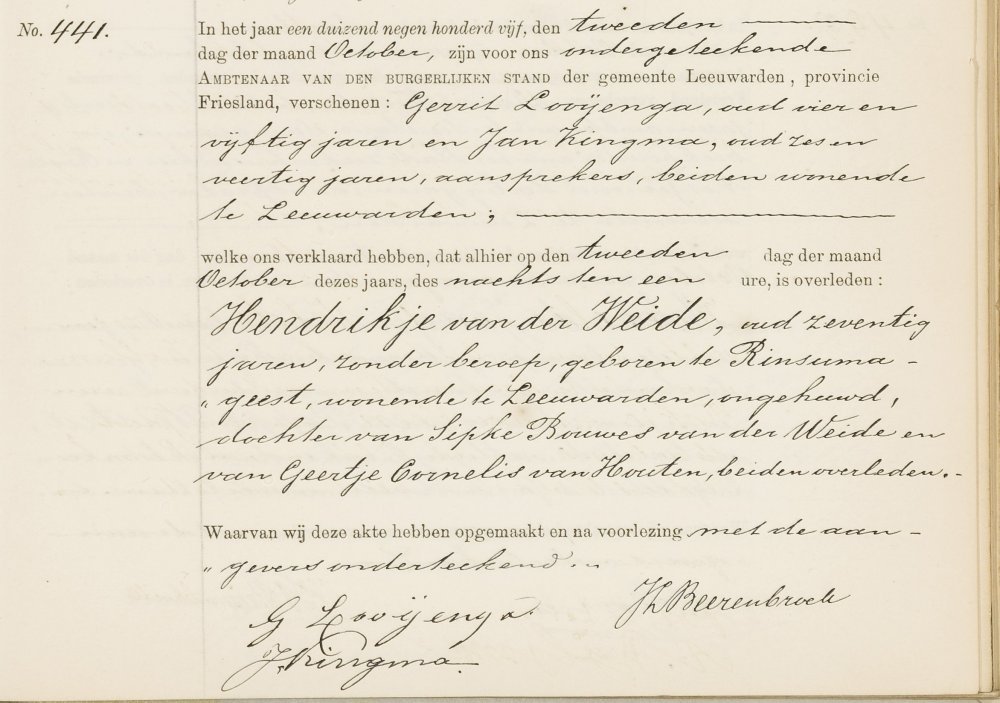 No. 441.
In het jaar een duizend negen honderd vijf, den tweeden
dag der maand October, zijn voor ons ondergeteekende
AMBTENAAR VAN DEN BURGERLIJKEN STAND der gemeente Leeuwarden, provincie
Friesland, verschenen: Gerrit Looijenga, oud vier en
vijftig jaren en Jan Kingma, oud zes en
veertig jaren, aansprekers, beiden wonende
te Leeuwarden;
welke ons verklaard hebben, dat alhier op den tweeden dag der maand
October dezes jaars, des nachts ten een ure, is overleden:
Hendrikje van der Weide, oud zeventig
jaren, zonder beroep, geboren te Rinsuma-
„geest, wonende te Leeuwarden, ongehuwd,
dochter van Sipke Bouwes van der Weide en
van Geertje Cornelis van Houten, beiden overleden.-
Waarvan wij deze akte hebben opgemaakt en na voorlezing met de aan-
„gevers onderteekend.
G Looijenga JLBeerenbrock
J. Kingma.